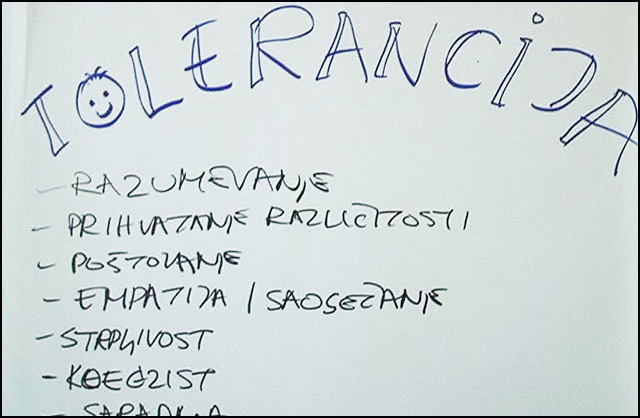 TOLERANCIJA
- RAZUMEVANJE
- PRIHVATANJE RAZLIČITOSTI
- POŠTOVANJE
- EMPATIJA / SAOSEĆANJE
- STRPLJIVOST
- KOEGZIST
- SARADNJA